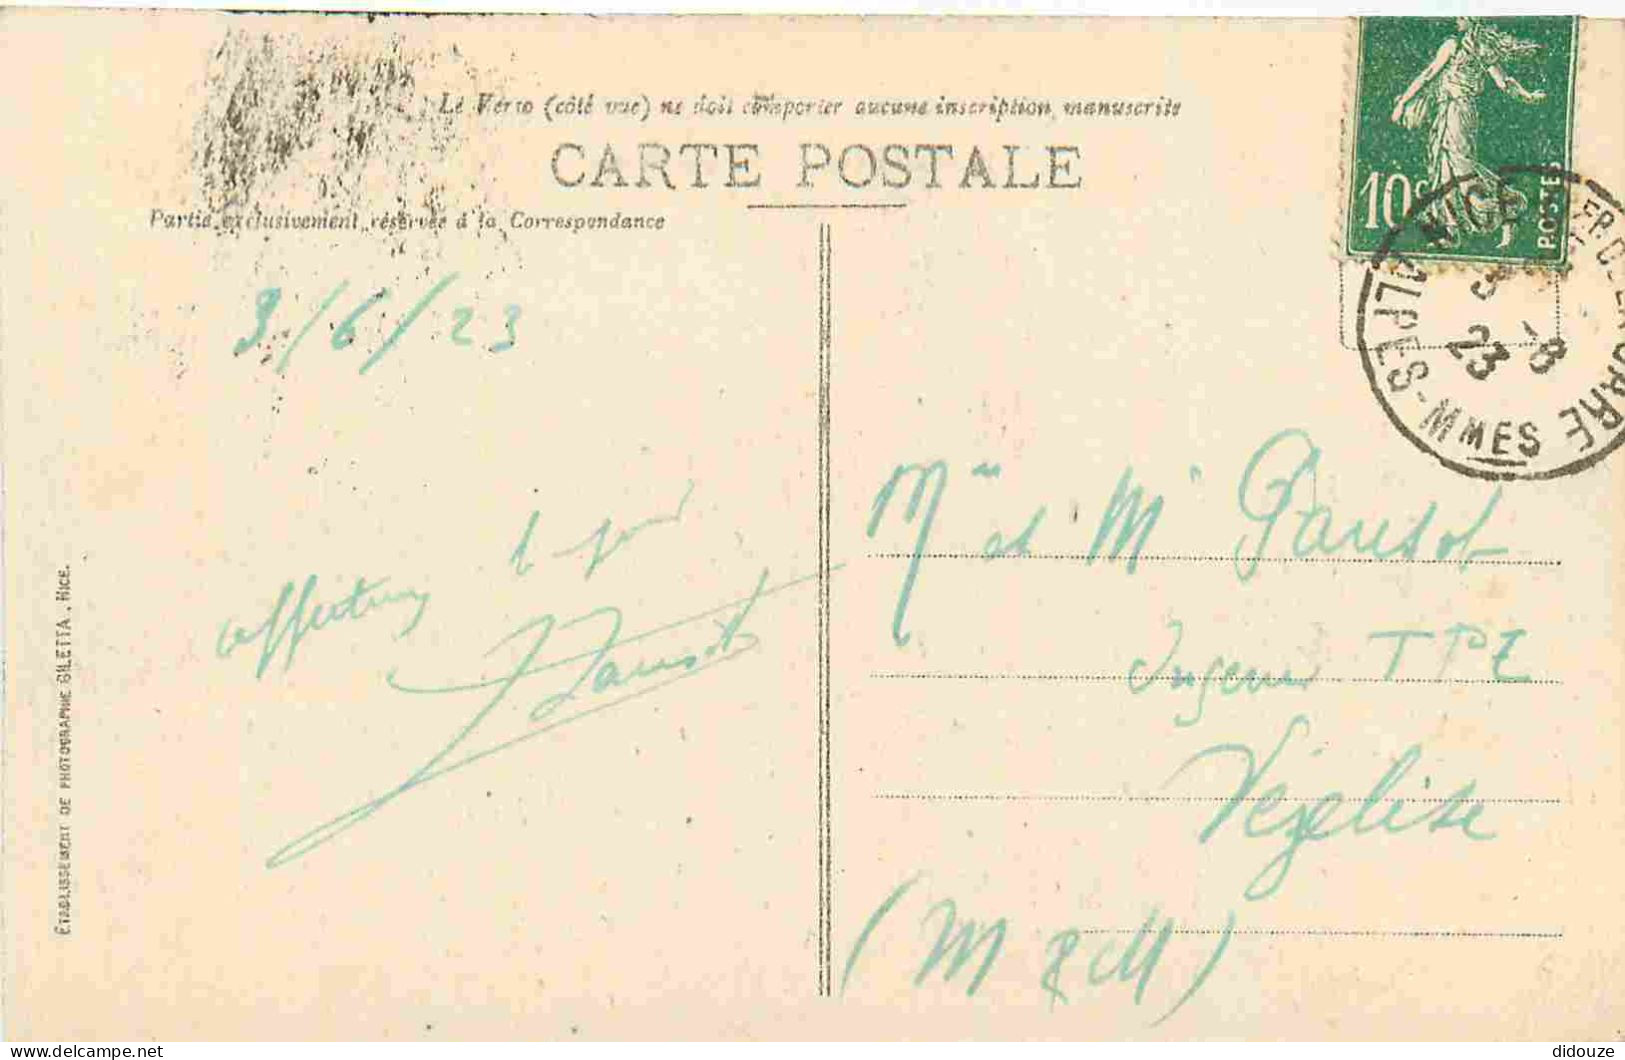 Le Verso (côté vue) ne doit comporter aucune inscription manuscrite
CARTE POSTALE
Partie exclusivement réservée à la Correspondance
10c
POSTES
NICE
ALPES-MMES
3 -6
23
3/6/23
Mme et Mr Pansot
TPE
Vézelise
(M & M)
affectueux
Pansot
ÉTABLISSEMENT DE PHOTOGRAPHIE GILETTA, NICE.
delcampe.net
didouze